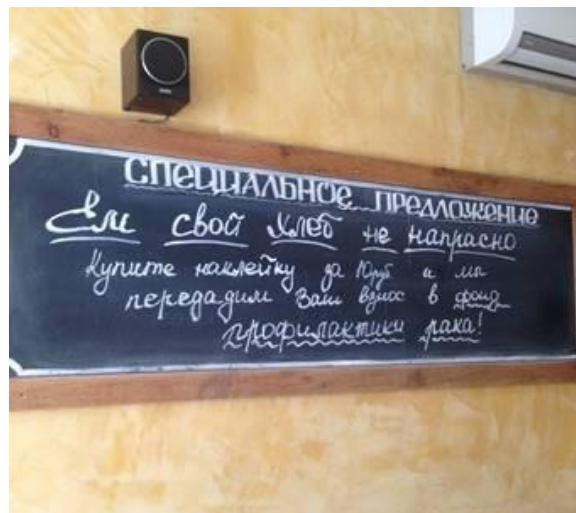 СПЕЦИАЛЬНОЕ ПРЕДЛОЖЕНИЕ
Ем свой хлеб не напрасно
Купите наклейку за 10руб и мы
передадим Ваш взнос в фонд
профилактики рака!